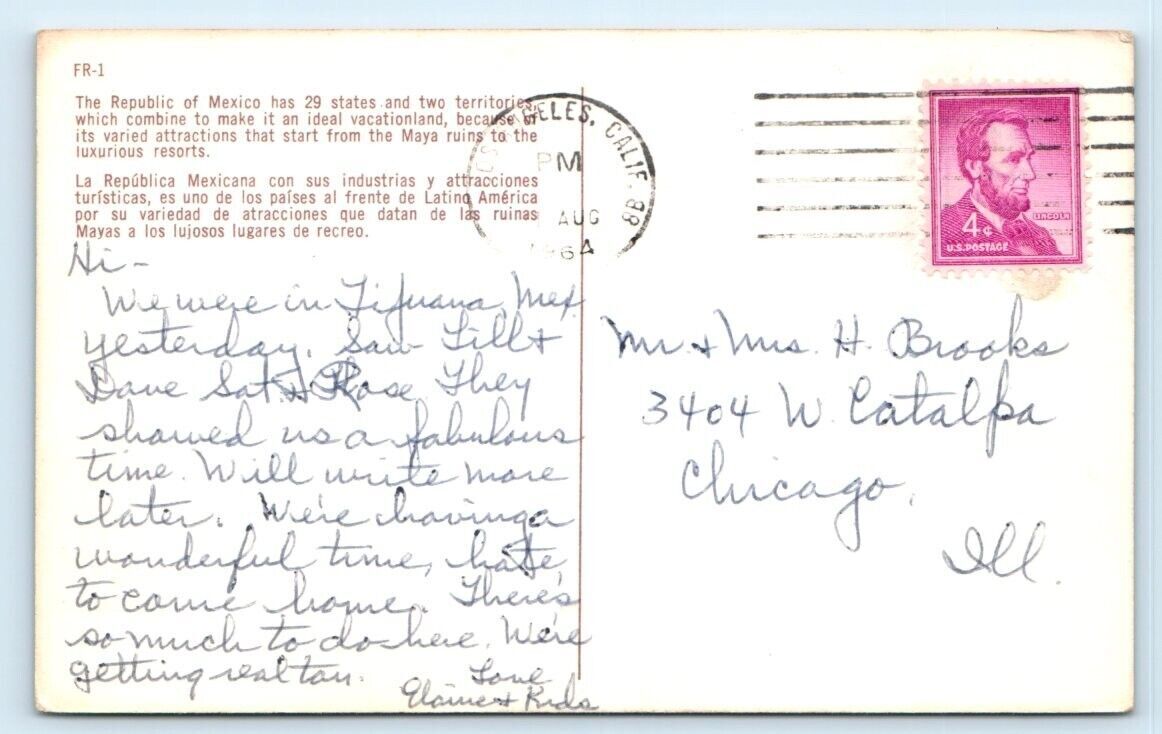 FR-1
The Republic of Mexico has 29 states and two territories,
which combine to make it an ideal vacationland, because of
its varied attractions that start from the Maya ruins to the
luxurious resorts.
La República Mexicana con sus industrias y attracciones
turísticas, es uno de los países al frente de Latino América
por su variedad de atracciones que datan de las ruinas
Mayas a los lujosos lugares de recreo.
Hi -
We were in Tijuana, Mex.
yesterday. Saw Lill +
Dave Sat. + Rose. They
showed us a fabulous
time. Will write more
later. We're having a
wonderful time, hate
to come home. There's
so much to do here. We're
getting real tan.
Love
Elaine + Kids
ELES, CALIF. 8B
PM
AUG
1964
4¢
LINCOLN
U.S. POSTAGE
Mr + Mrs. H. Brooks
3404 W. Catalpa
Chicago,
Ill.